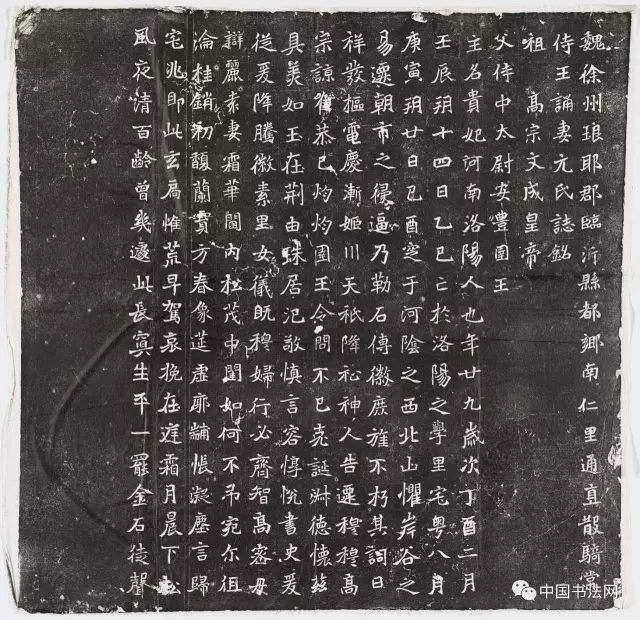 魏徐州琅耶郡臨沂縣都鄉南仁里通直散騎常
侍王誦妻元氏誌銘
祖高宗文成皇帝
父侍中太尉安豐圉王
主名貴妃河南洛陽人也年廿九歲次丁酉二月
壬辰朔十四日乙巳亡於洛陽之學里宅粵八月
庚寅朔廿日己酉窆于河陰之西北山懼岸谷之
易遷朝市之侵逼乃勒石傳徽庶旌不朽其詞曰
祥發樞電慶漸姬川天祇降祉神人告遷穆穆高
宗諒唯恭己灼灼圉王令問不已克誕淑德懷茲
具美如玉在荊由珠居汜敬慎言容惇悅書史爰
從爰降騰徽素里女儀既穆婦行必齊智高密母
辯麗袁妻霜華閫內松茂中閨如何不弔宛尔徂
淪桂銷初馥蘭實方春象筵虛廓黼悵凝塵言歸
宅兆即此玄扃惟荒早駕哀挽在庭霜月晨下松
風夜清百齡曾幾邈此長冥生平一罷金石徒聲
中国书法网